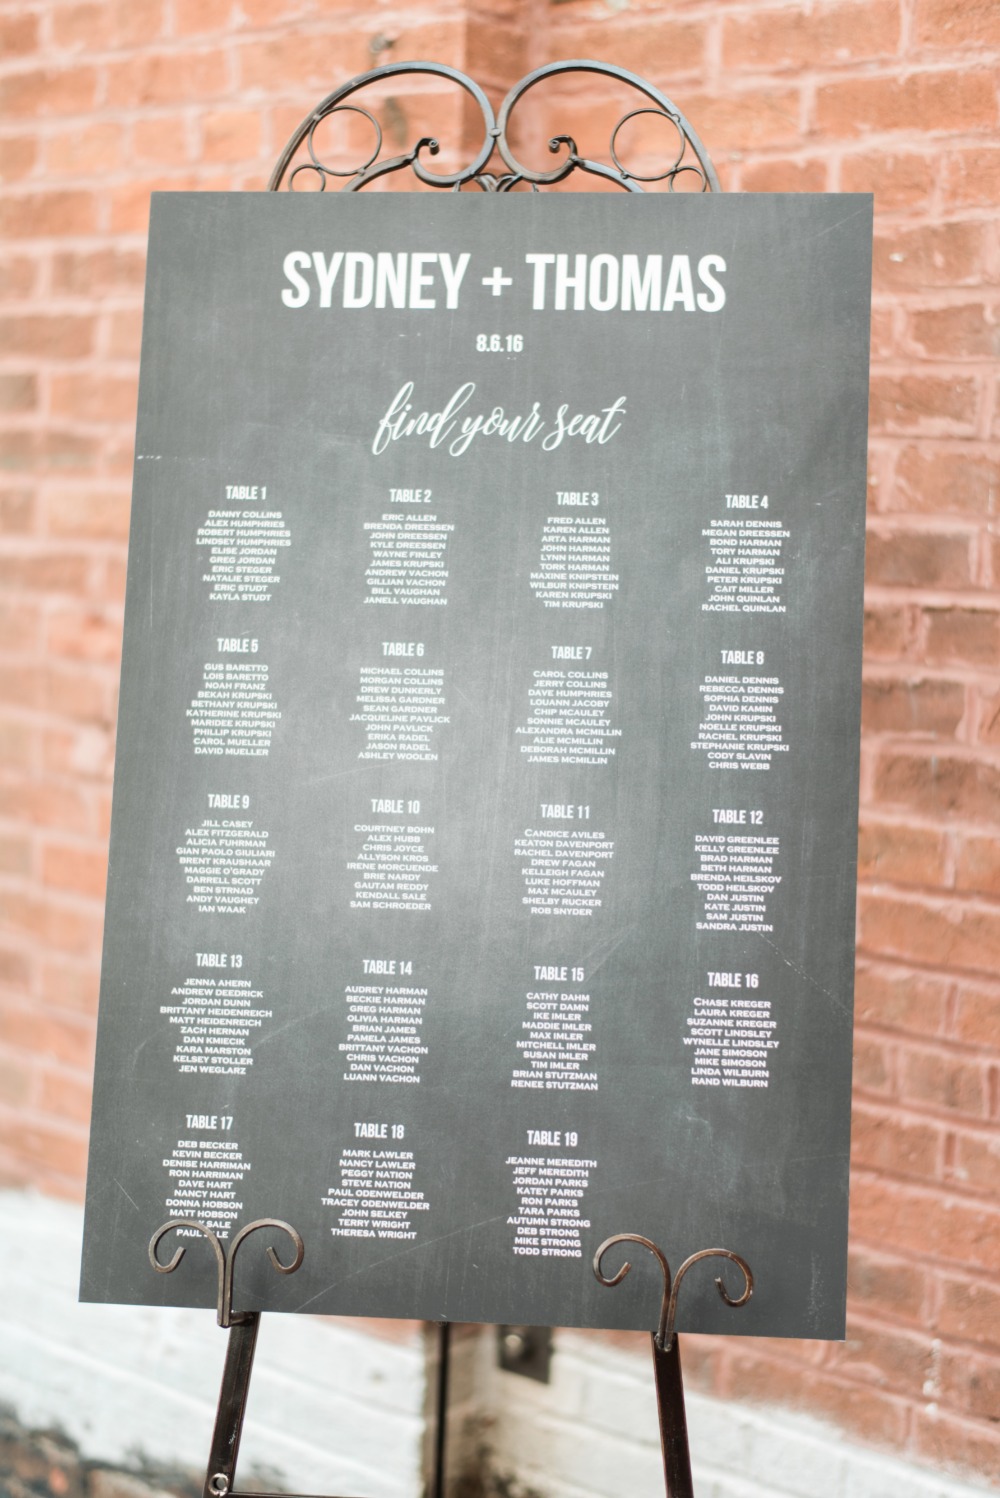 SYDNEY + THOMAS
8.6.16
find your seat
TABLE 1
DANNY COLLINS
ALEX HUMPHRIES
ROBERT HUMPHRIES
LINDSEY HUMPHRIES
ELISE JORDAN
GREG JORDAN
ERIC STEGER
NATALIE STEGER
ERIC STUDT
KAYLA STUDT
TABLE 2
ERIC ALLEN
BRENDA DREESSEN
JOHN DREESSEN
KYLE DREESSEN
WAYNE FINLEY
JAMES KRUPSKI
ANDREW VACHON
GILLIAN VACHON
BILL VAUGHAN
JANELL VAUGHAN
TABLE 3
FRED ALLEN
KAREN ALLEN
ARTA HARMAN
JOHN HARMAN
LYNN HARMAN
TORK HARMAN
MAXINE KNIPSTEIN
WILBUR KNIPSTEIN
KAREN KRUPSKI
TIM KRUPSKI
TABLE 4
SARAH DENNIS
MEGAN DREESSEN
BOND HARMAN
TORY HARMAN
ALI KRUPSKI
DANIEL KRUPSKI
PETER KRUPSKI
CAIT MILLER
JOHN QUINLAN
RACHEL QUINLAN
TABLE 5
GUS BARETTO
LOIS BARETTO
NOAH FRANZ
BEKAH KRUPSKI
BETHANY KRUPSKI
KATHERINE KRUPSKI
MARIDEE KRUPSKI
PHILLIP KRUPSKI
CAROL MUELLER
DAVID MUELLER
TABLE 6
MICHAEL COLLINS
MORGAN COLLINS
DREW DUNKERLY
MELISSA GARDNER
SEAN GARDNER
JACQUELINE PAVLICK
JOHN PAVLICK
ERIKA RADEL
JASON RADEL
ASHLEY WOOLEN
TABLE 7
CAROL COLLINS
JERRY COLLINS
DAVE HUMPHRIES
LOUANN JACOBY
CHIP MCAULEY
SONNIE MCAULEY
ALEXANDRA MCMILLIN
ALIE MCMILLIN
DEBORAH MCMILLIN
JAMES MCMILLIN
TABLE 8
DANIEL DENNIS
REBECCA DENNIS
SOPHIA DENNIS
DAVID KAMIN
JOHN KRUPSKI
NOELLE KRUPSKI
RACHEL KRUPSKI
STEPHANIE KRUPSKI
CODY SLAVIN
CHRIS WEBB
TABLE 9
JILL CASEY
ALEX FITZGERALD
ALICIA FUHRMAN
GIAN PAOLO GIULIARI
BRENT KRAUSHAAR
MAGGIE O'GRADY
DARRELL SCOTT
BEN STRNAD
ANDY VAUGHEY
IAN WAAK
TABLE 10
COURTNEY BOHN
ALEX HUBB
CHRIS JOYCE
ALLYSON KROS
IRENE MORCUENDE
BRIE NARDY
GAUTAM REDDY
KENDALL SALE
SAM SCHROEDER
TABLE 11
CANDICE AVILES
KEATON DAVENPORT
RACHEL DAVENPORT
DREW FAGAN
KELLEIGH FAGAN
LUKE HOFFMAN
MAX MCAULEY
SHELBY RUCKER
ROB SNYDER
TABLE 12
DAVID GREENLEE
KELLY GREENLEE
BRAD HARMAN
BETH HARMAN
BRENDA HEILSKOV
TODD HEILSKOV
DAN JUSTIN
KATE JUSTIN
SAM JUSTIN
SANDRA JUSTIN
TABLE 13
JENNA AHERN
ANDREW DEEDRICK
JORDAN DUNN
BRITTANY HEIDENREICH
MATT HEIDENREICH
ZACH HERNAN
DAN KMIECIK
KARA MARSTON
KELSEY STOLLER
JEN WEGLARZ
TABLE 14
AUDREY HARMAN
BECKIE HARMAN
GREG HARMAN
OLIVIA HARMAN
BRIAN JAMES
PAMELA JAMES
BRITTANY VACHON
CHRIS VACHON
DAN VACHON
LUANN VACHON
TABLE 15
CATHY DAHM
SCOTT DAMN
IKE IMLER
MADDIE IMLER
MAX IMLER
MITCHELL IMLER
SUSAN IMLER
TIM IMLER
BRIAN STUTZMAN
RENEE STUTZMAN
TABLE 16
CHASE KREGER
LAURA KREGER
SUZANNE KREGER
SCOTT LINDSLEY
WYNELLE LINDSLEY
JANE SIMOSON
MIKE SIMOSON
LINDA WILBURN
RAND WILBURN
TABLE 17
DEB BECKER
KEVIN BECKER
DENISE HARRIMAN
RON HARRIMAN
DAVE HART
NANCY HART
DONNA HOBSON
MATT HOBSON
SALE
PAUL
TABLE 18
MARK LAWLER
NANCY LAWLER
PEGGY NATION
STEVE NATION
PAUL ODENWELDER
TRACEY ODENWELDER
JOHN SELKEY
TERRY WRIGHT
THERESA WRIGHT
TABLE 19
JEANNE MEREDITH
JEFF MEREDITH
JORDAN PARKS
KATEY PARKS
RON PARKS
TARA PARKS
AUTUMN STRONG
DEB STRONG
MIKE STRONG
TODD STRONG